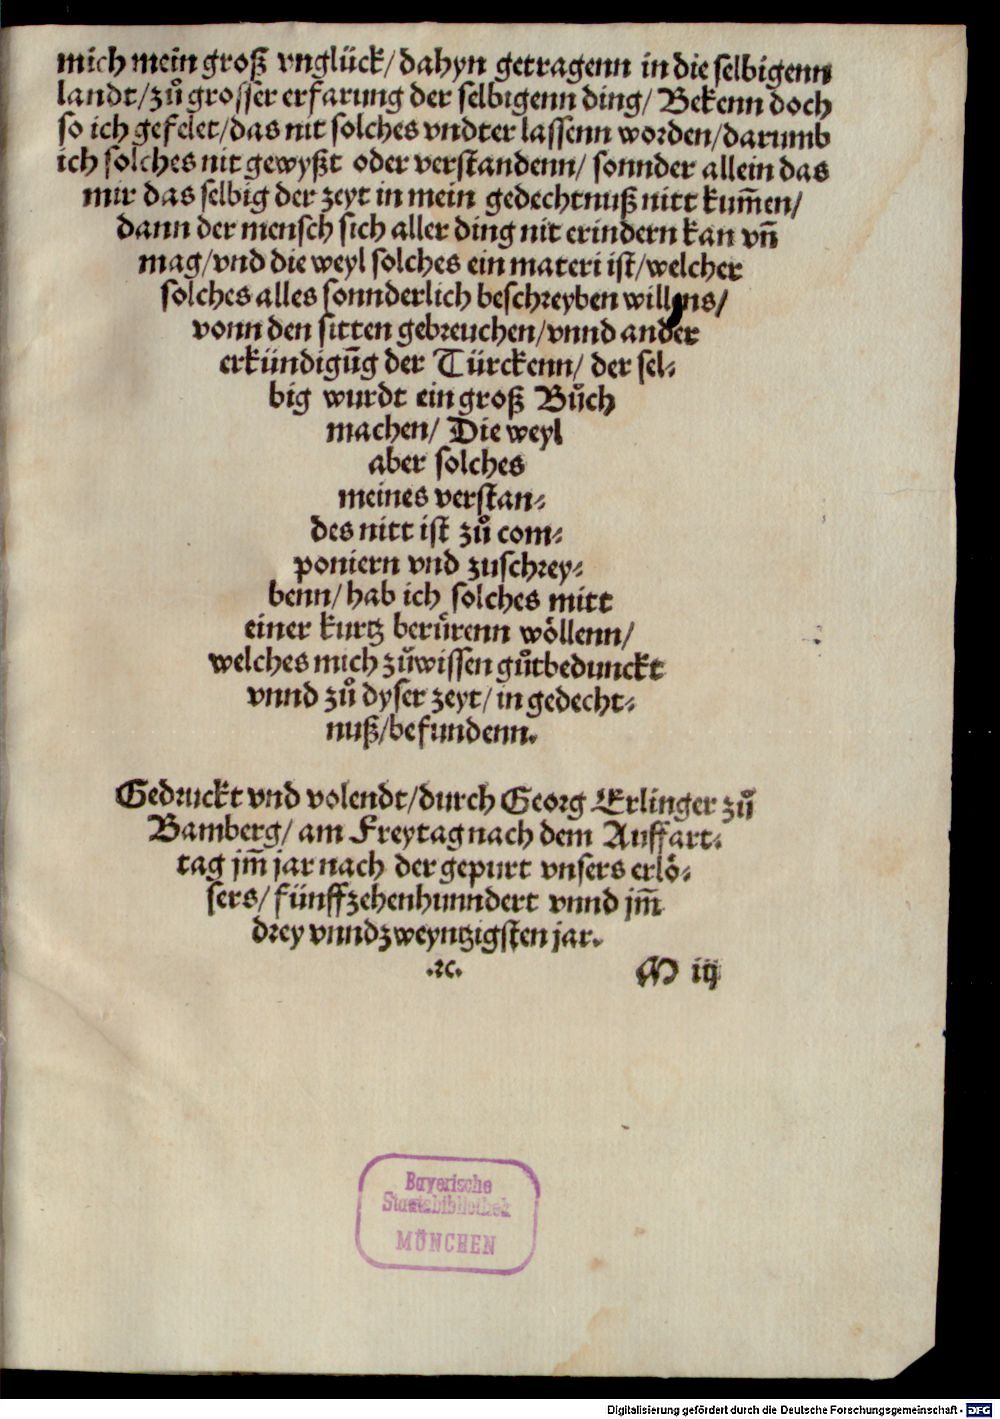 mich mein groß vnglück/ dahyn getragenn in die selbigenn
landt/ zů grosser erfarung der selbigenn ding/ Bekenn doch
so ich gefelet/ das nit solches vndter lassenn worden/ darumb
ich solches nit gewyßt oder verstandenn/ sonnder allein das
mir das selbig der zeyt in mein gedechtnuß nitt kum̃en/
dann der mensch sich aller ding nit erindern kan vñ
mag/ vnd die weyl solches ein materi ist/ welcher
solches alles sonnderlich beschreyben willens/
vonn den sitten gebreuchen/ vnnd ander
erkündigũg der Türckenn/ der sel⸗
big wurdt ein groß Bůch
machen/ Die weyl
aber solches
meines verstan⸗
des nitt ist zů com⸗
poniern vnd zuschrey⸗
benn/ hab ich solches mitt
einer kurtz berůrenn wöllenn/
welches mich zůwissen gůtbedunckt
vnnd zů dyser zeyt/ in gedecht⸗
nuß/ befundenn.
Gedruckt vnd volendt/ durch Georg Erlinger zů
Bamberg/ am Freytag nach dem Auffart⸗
tag jm̃ jar nach der gepurt vnsers erlö⸗
sers/ fünffzehenhunndert vnnd jm̃
drey vnndzweyntzigsten jar.
.ꝛc. M iij
Bayerische
Staatsbibliothek
MÜNCHEN
Digitalisierung gefördert durch die Deutsche Forschungsgemeinschaft - DFG